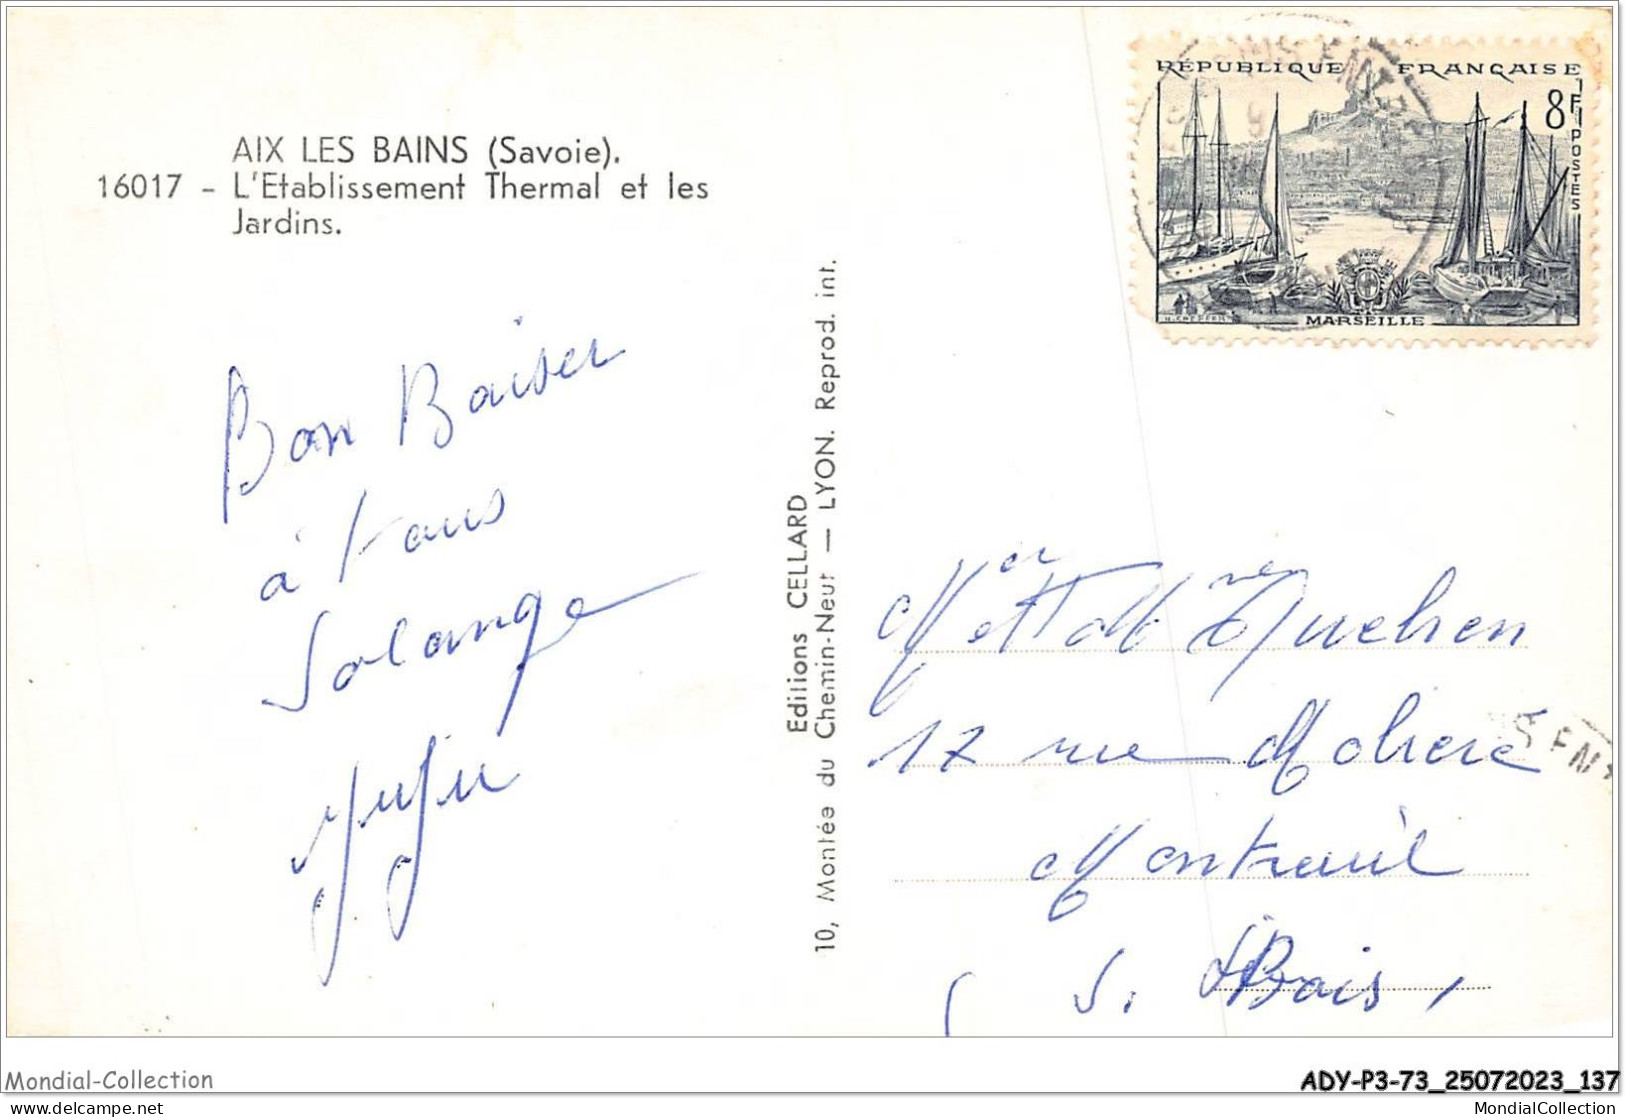 AIX LES BAINS (Savoie).
16017 - L'Etablissement Thermal et les
Jardins.
Bon Baiser
à tous
Solange
Editions CELLARD
10, Montée du Chemin-Neuf — LYON. Reprod. int.
RÉPUBLIQUE FRANÇAISE
8F
POSTES
MARSEILLE
Mer et Mme
17 rue Moliere
Montreuil
S. Bois
Mondial-Collection
ADY-P3-73_25072023_137
www.delcampe.net
MondialCollection